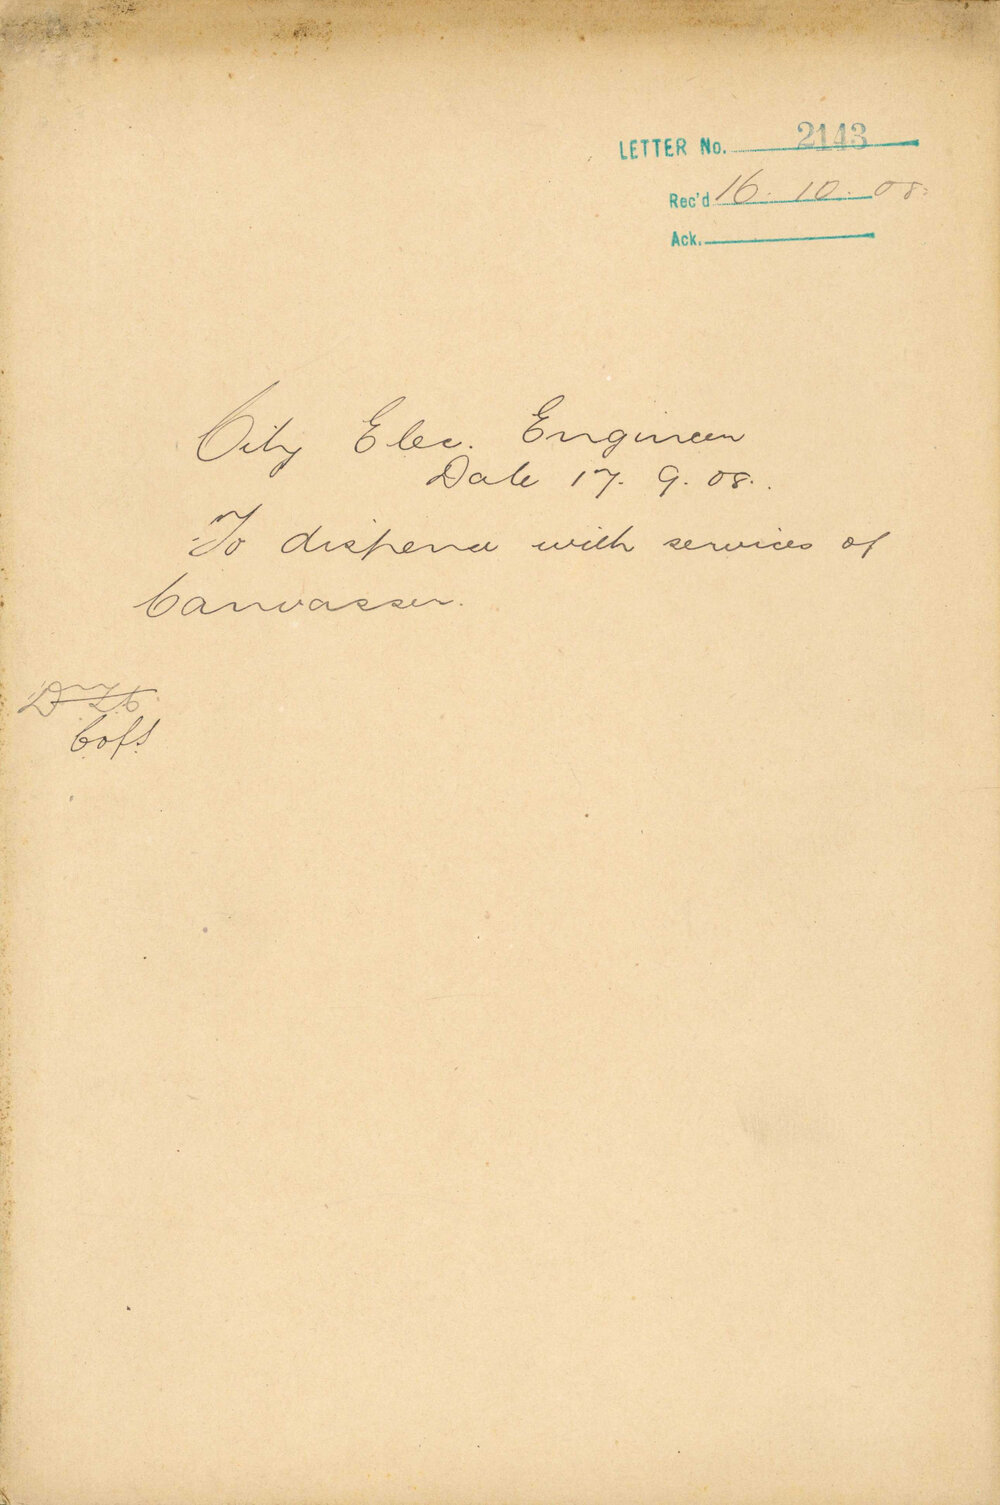 LETTER No. 2143
Rec'd 16. 10. 08.
Ack.
City Elec. Engineer
Date 17. 9. 08.
To dispense with services of
Canvasser.